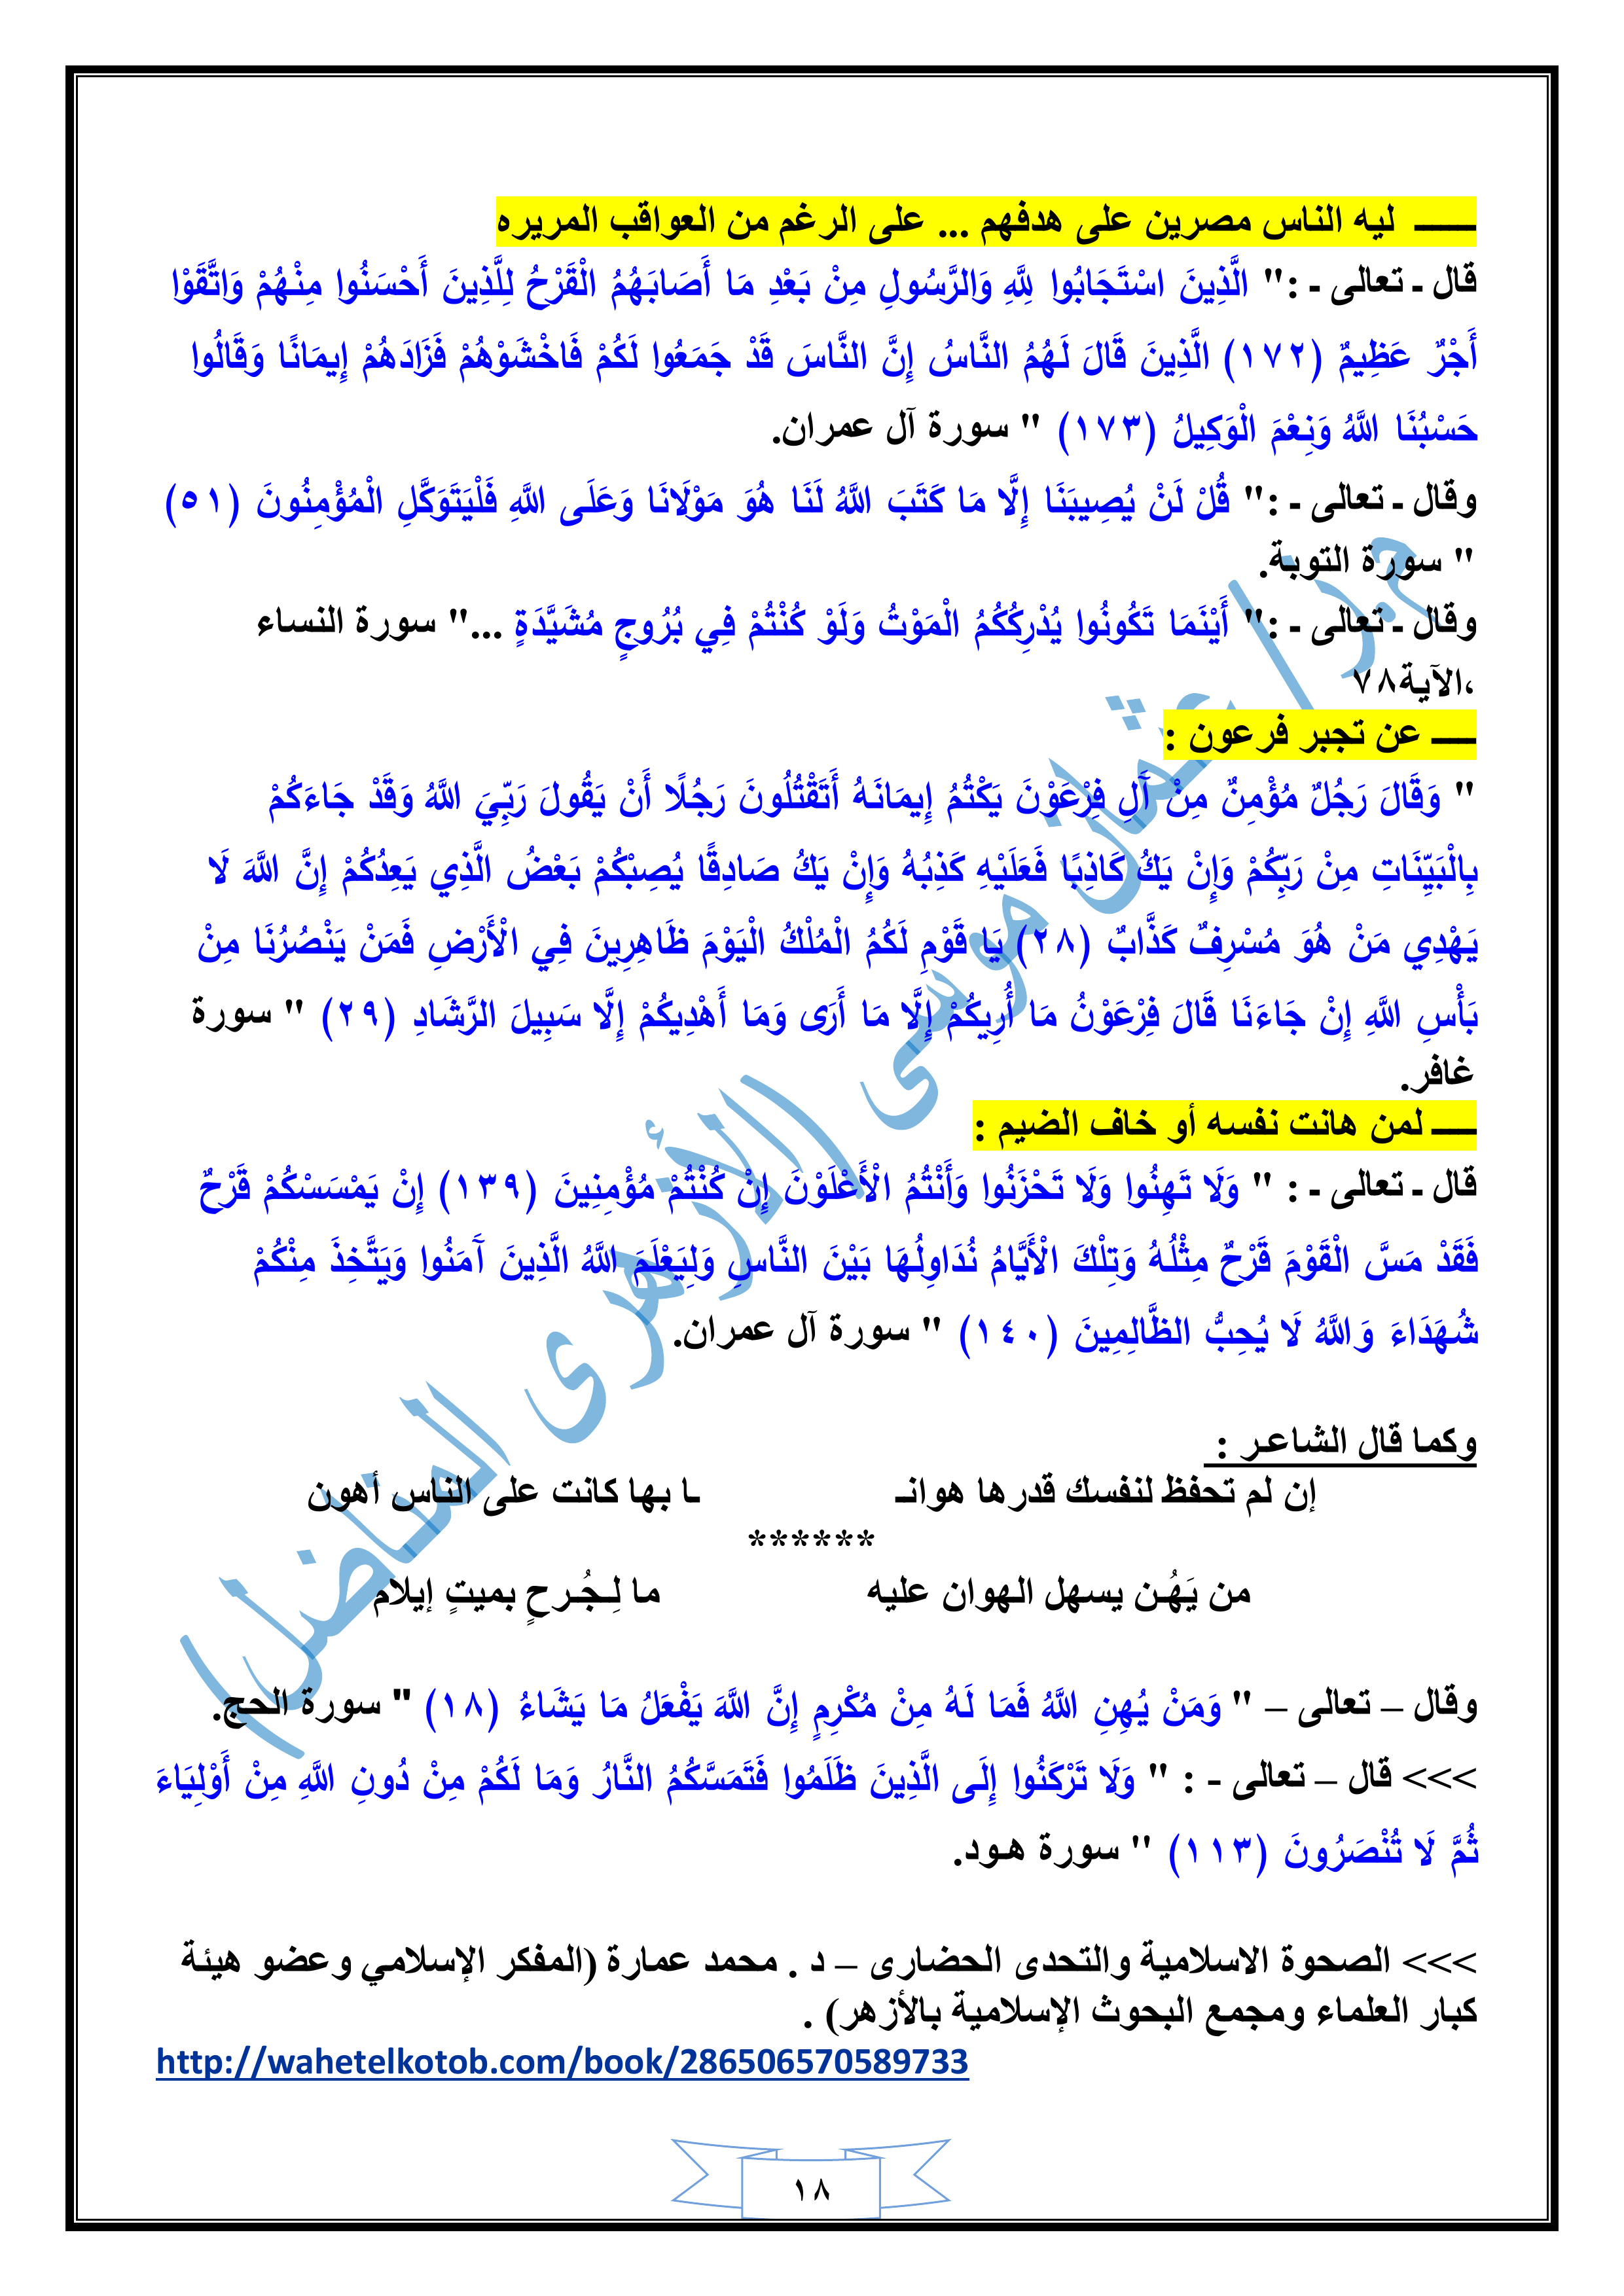 ــــ ليه الناس مصرين على هدفهم ... على الرغم من العواقب المريره
قال ـ تعالى ـ :" الَّذِينَ اسْتَجَابُوا لِلَّهِ وَالرَّسُولِ مِنْ بَعْدِ مَا أَصَابَهُمُ الْقَرْحُ لِلَّذِينَ أَحْسَنُوا مِنْهُمْ وَاتَّقَوْا
أَجْرٌ عَظِيمٌ (١٧٢) الَّذِينَ قَالَ لَهُمُ النَّاسُ إِنَّ النَّاسَ قَدْ جَمَعُوا لَكُمْ فَاخْشَوْهُمْ فَزَادَهُمْ إِيمَانًا وَقَالُوا
حَسْبُنَا اللَّهُ وَنِعْمَ الْوَكِيلُ (١٧٣) " سورة آل عمران.
وقال ـ تعالى ـ :" قُلْ لَنْ يُصِيبَنَا إِلَّا مَا كَتَبَ اللَّهُ لَنَا هُوَ مَوْلَانَا وَعَلَى اللَّهِ فَلْيَتَوَكَّلِ الْمُؤْمِنُونَ (٥١)
" سورة التوبة.
وقال ـ تعالى ـ :" أَيْنَمَا تَكُونُوا يُدْرِكُكُمُ الْمَوْتُ وَلَوْ كُنْتُمْ فِي بُرُوجٍ مُشَيَّدَةٍ ..." سورة النساء
،الآية٧٨
ـــ عن تجبر فرعون :
" وَقَالَ رَجُلٌ مُؤْمِنٌ مِنْ آَلِ فِرْعَوْنَ يَكْتُمُ إِيمَانَهُ أَتَقْتُلُونَ رَجُلًا أَنْ يَقُولَ رَبِّيَ اللَّهُ وَقَدْ جَاءَكُمْ
بِالْبَيِّنَاتِ مِنْ رَبِّكُمْ وَإِنْ يَكُ كَاذِبًا فَعَلَيْهِ كَذِبُهُ وَإِنْ يَكُ صَادِقًا يُصِبْكُمْ بَعْضُ الَّذِي يَعِدُكُمْ إِنَّ اللَّهَ لَا
يَهْدِي مَنْ هُوَ مُسْرِفٌ كَذَّابٌ (٢٨) يَا قَوْمِ لَكُمُ الْمُلْكُ الْيَوْمَ ظَاهِرِينَ فِي الْأَرْضِ فَمَنْ يَنْصُرُنَا مِنْ
بَأْسِ اللَّهِ إِنْ جَاءَنَا قَالَ فِرْعَوْنُ مَا أُرِيكُمْ إِلَّا مَا أَرَى وَمَا أَهْدِيكُمْ إِلَّا سَبِيلَ الرَّشَادِ (٢٩) " سورة
غافر.
ـــ لمن هانت نفسه أو خاف الضيم :
قال ـ تعالى ـ : " وَلَا تَهِنُوا وَلَا تَحْزَنُوا وَأَنْتُمُ الْأَعْلَوْنَ إِنْ كُنْتُمْ مُؤْمِنِينَ (١٣٩) إِنْ يَمْسَسْكُمْ قَرْحٌ
فَقَدْ مَسَّ الْقَوْمَ قَرْحٌ مِثْلُهُ وَتِلْكَ الْأَيَّامُ نُدَاوِلُهَا بَيْنَ النَّاسِ وَلِيَعْلَمَ اللَّهُ الَّذِينَ آَمَنُوا وَيَتَّخِذَ مِنْكُمْ
شُهَدَاءَ وَاللَّهُ لَا يُحِبُّ الظَّالِمِينَ (١٤٠) " سورة آل عمران.
وكما قال الشاعـر :
إن لم تحفظ لنفسك قدرها هوانـ ـا بها كانت على الناس أهون
******
من يَهُـن يسهل الهوان عليه ما لِـجُـرحٍ بميتٍ إيلام
وقال – تعالى – " وَمَنْ يُهِنِ اللَّهُ فَمَا لَهُ مِنْ مُكْرِمٍ إِنَّ اللَّهَ يَفْعَلُ مَا يَشَاءُ (١٨) " سورة الحج.
>>> قال – تعالى - : " وَلَا تَرْكَنُوا إِلَى الَّذِينَ ظَلَمُوا فَتَمَسَّكُمُ النَّارُ وَمَا لَكُمْ مِنْ دُونِ اللَّهِ مِنْ أَوْلِيَاءَ
ثُمَّ لَا تُنْصَرُونَ (١١٣) " سورة هـود.
>>> الصحوة الاسلامية والتحدى الحضارى – د . محمد عمارة (المفكر الإسلامي وعضو هيئة
كبار العلماء ومجمع البحوث الإسلامية بالأزهر) .
http://wahetelkotob.com/book/286506570589733
١٨
م.ر / عثمان موسى (الأزهرى المناضل)